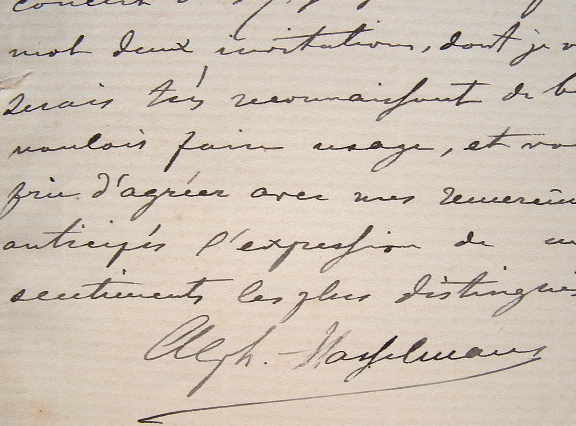 mot deux invitations, dont je v
serais très reconnaissant de b
vouloir faire usage, et vo
prie d'agréer avec mes remerciem
anticipés l'expression de m
sentiments les plus distingués
Alph. Hasselmans